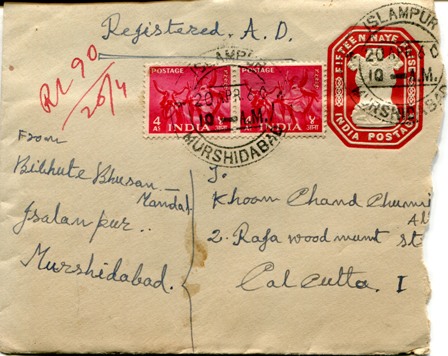 Registered. A. D.
RL 90
26/4
POSTAGE
4 As
INDIA
POSTAGE
INDIA
FIFTEEN NAYE
INDIA POSTAGE
ISLAMPUR
20
10 A.M.
MURSHIDABAD
ISLAMPUR
20
10 A.M.
MURSHIDABAD
From
Bibhute Bhusan
Mandal
Isalanpur..
Murshidabad.
To
Khoom Chand Chunni
2. Raja wood munt st
Calcutta. I